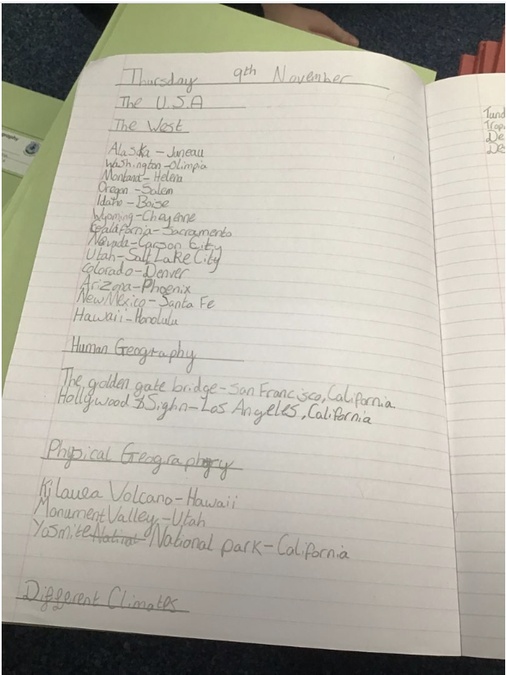 Thursday 9th November
The U.S.A
The West
Alaska - Juneau
Washington - Olimpia
Montana - Helena
Oregon - Salem
Idaho - Boise
Wyoming - Cheyenne
California - Sacramento
Nevada - Carson City
Utah - Salt Lake City
Colorado - Denver
Arizona - Phoenix
New Mexico - Santa Fe
Hawaii - Honolulu
Human Geography
The golden gate bridge - San Francisco, California
Hollywood Sighn - Los Angeles, California
Physical Geography
Kilauea Volcano - Hawaii
Monument Valley - Utah
Yosmite National park - California
Different Climates